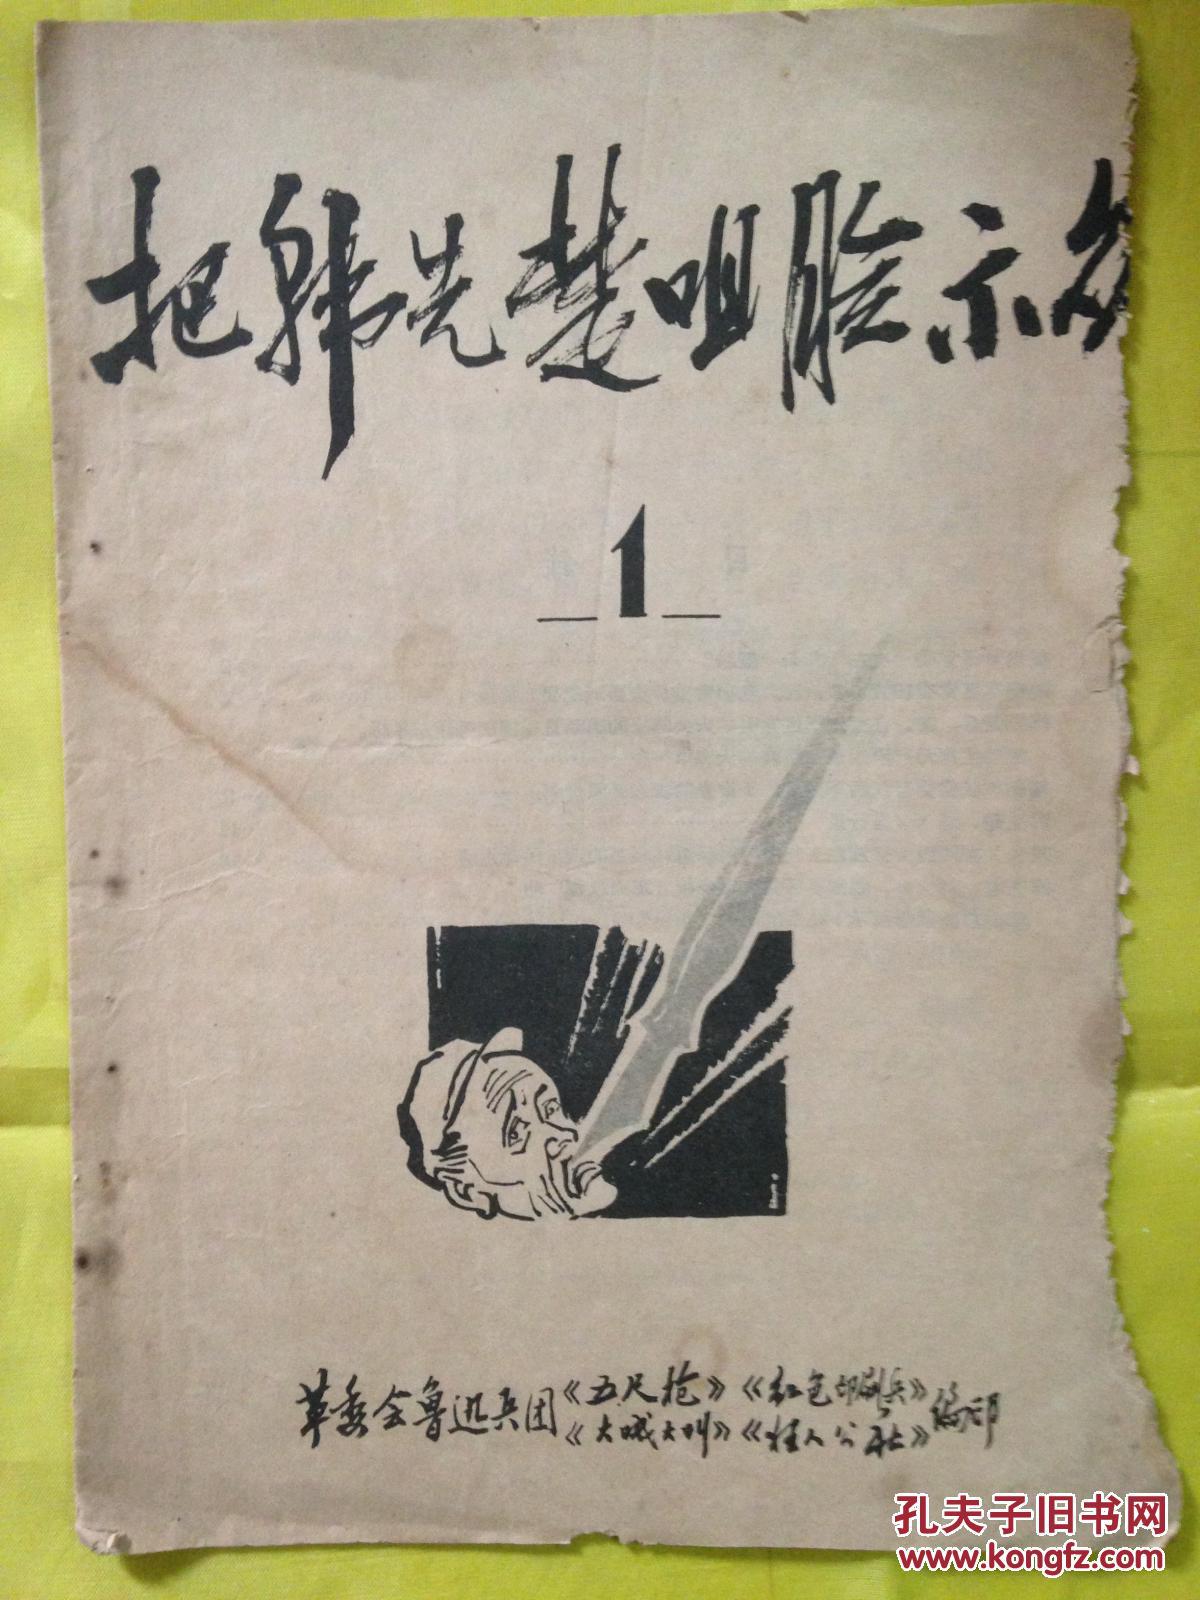 把韩先楚咀脸示众
1
革委会鲁迅兵团《五尺枪》《红色印刷兵》编印
《大喊大叫》《狂人公社》
孔夫子旧书网
www.kongfz.com